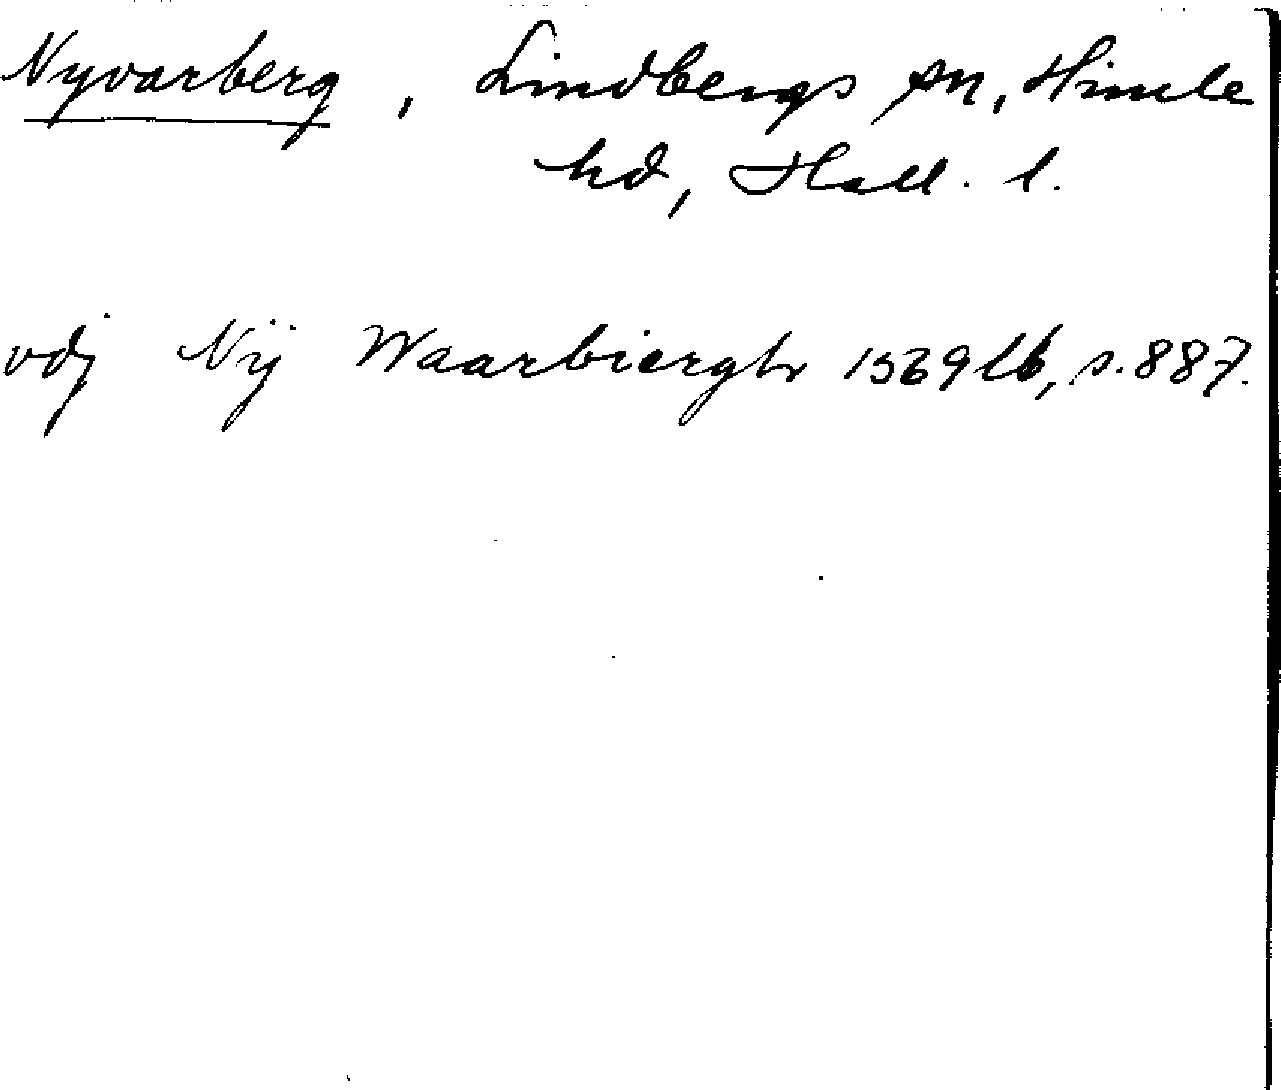 Nyvarberg, Lindbergs sn, Himle
hd, Hall. l.
vdj Nÿ Waarbiergh 1569 lb, s. 887.